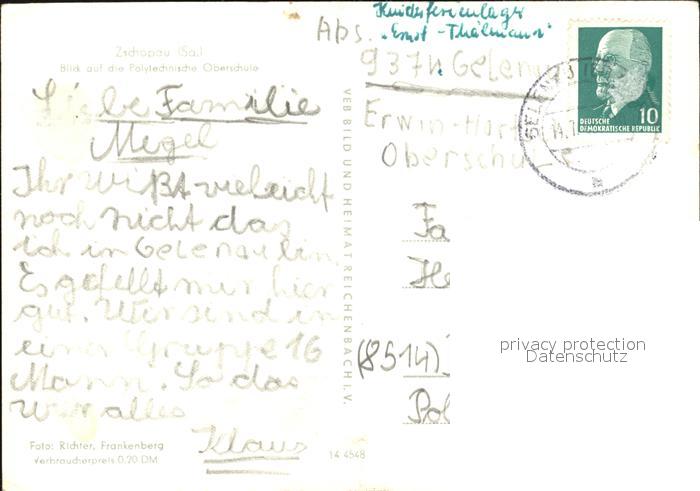 Zschopau (Sa.)
Blick auf die Polytechnische Oberschule
Liebe Familie
Megel
Ihr wißt vieleicht
noch nicht das
ich in Gelenau bin.
Es gefellt mir hier
gut. Wir sind in
einer Gruppe 16
Mann. So das
wir alles
Klaus
Foto: Richter, Frankenberg
Verbraucherpreis 0,20 DM
14 4548
VEB BILD UND HEIMAT REICHENBACH I. V.
Abs. Kinderferienlager
"Ernst-Thälmann"
9374 Gelenau
Erwin-Hart
Oberschul
DEUTSCHE
DEMOKRATISCHE REPUBLIK
10
Fa
He
(8514)
Pol
privacy protection
Datenschutz